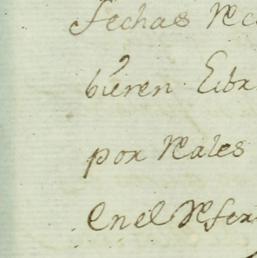 fechas Rec
bieren Libr
por Reales
En el Refer